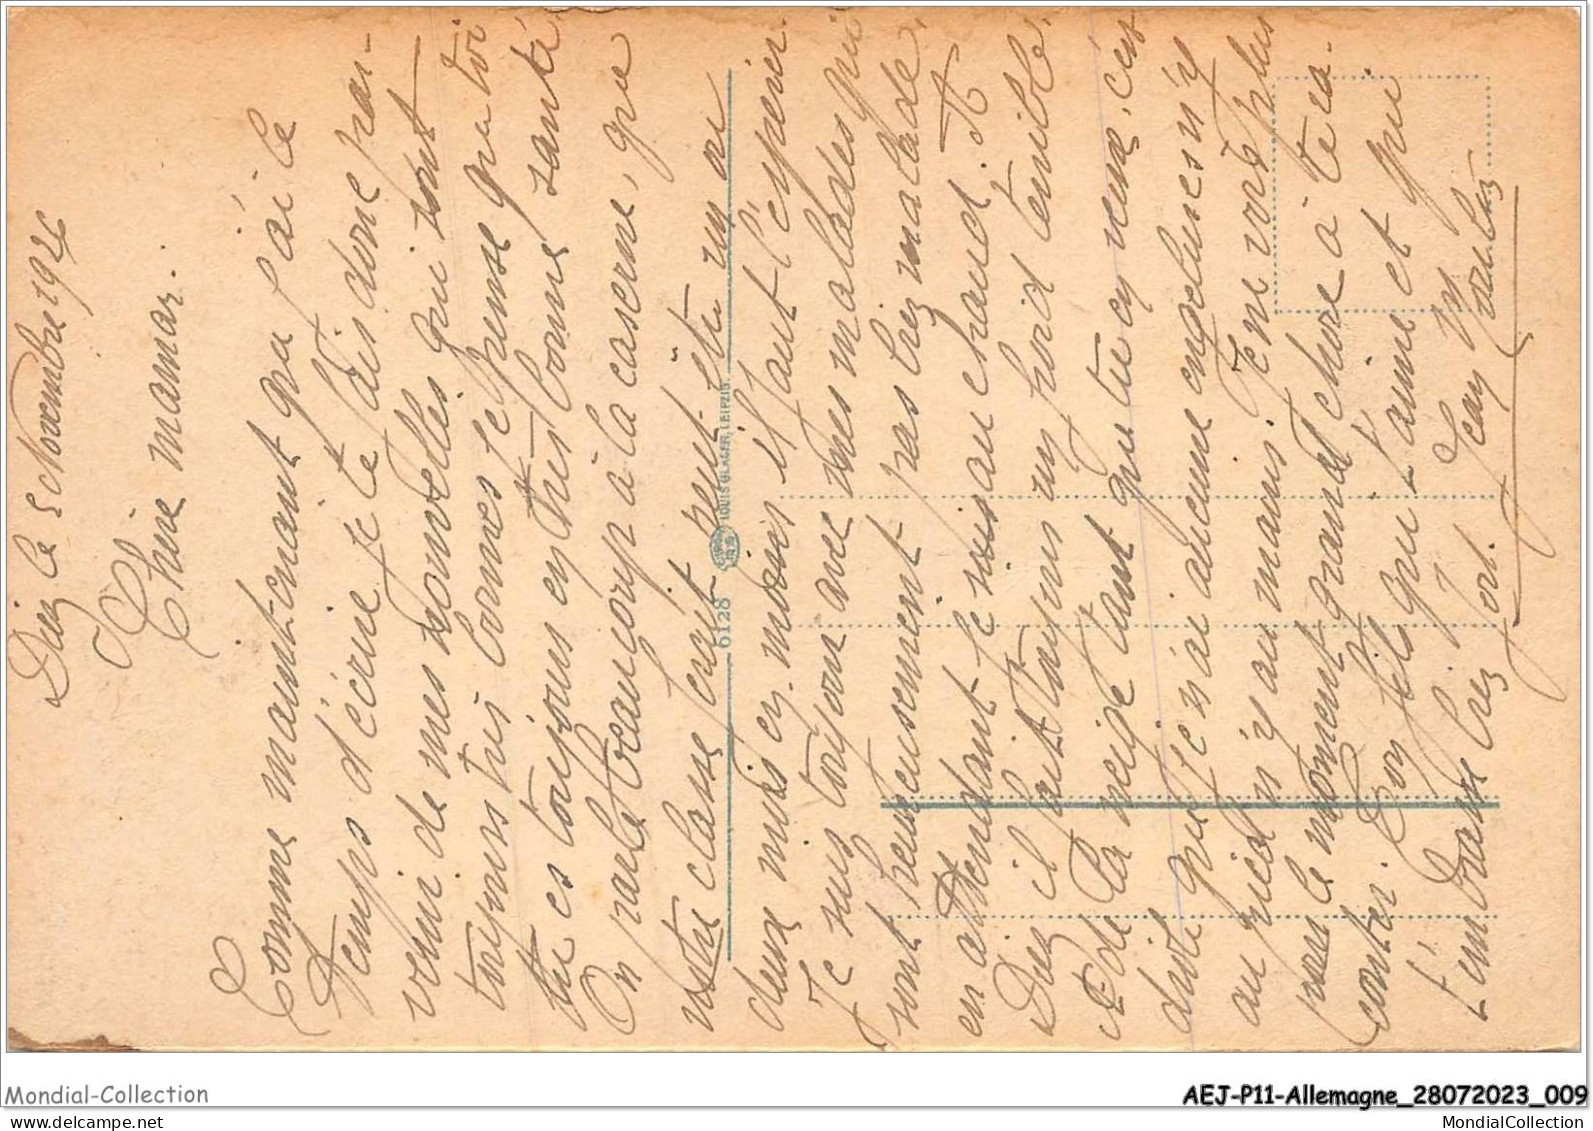 Diez le 5 Novembre 1924
Chère maman.
Comme maintenant que j'ai le
temps d'écrire je te fais donc par-
venir de mes nouvelles qui sont
toujours très bonnes je pense que toi
tu es toujours en très bonne santé
On parle beaucoup à la caserne, que
notre classe serait peut-être un ou
deux mois en moins il faut l'espérer.
Je suis toujours avec mes malades qui
sont heureusement pas bien malade,
en attendant je suis au chaud. A
Diez il fait toujours un froid terrible,
et de la neige tant que tu en veux. c'est
juste que je n'ai aucune engelures n'y
au pieds n'y au mains. Je ne vois plus
pour le moment grand chose à te ra-
conter. Ton fils qui t'aime et qui
t'embrasse bien fort. Jean
6128
LOUIS GLASER, LEIPZIG.
Mondial-Collection
AEJ-P11-Allemagne_28072023_009
MondialCollection.com